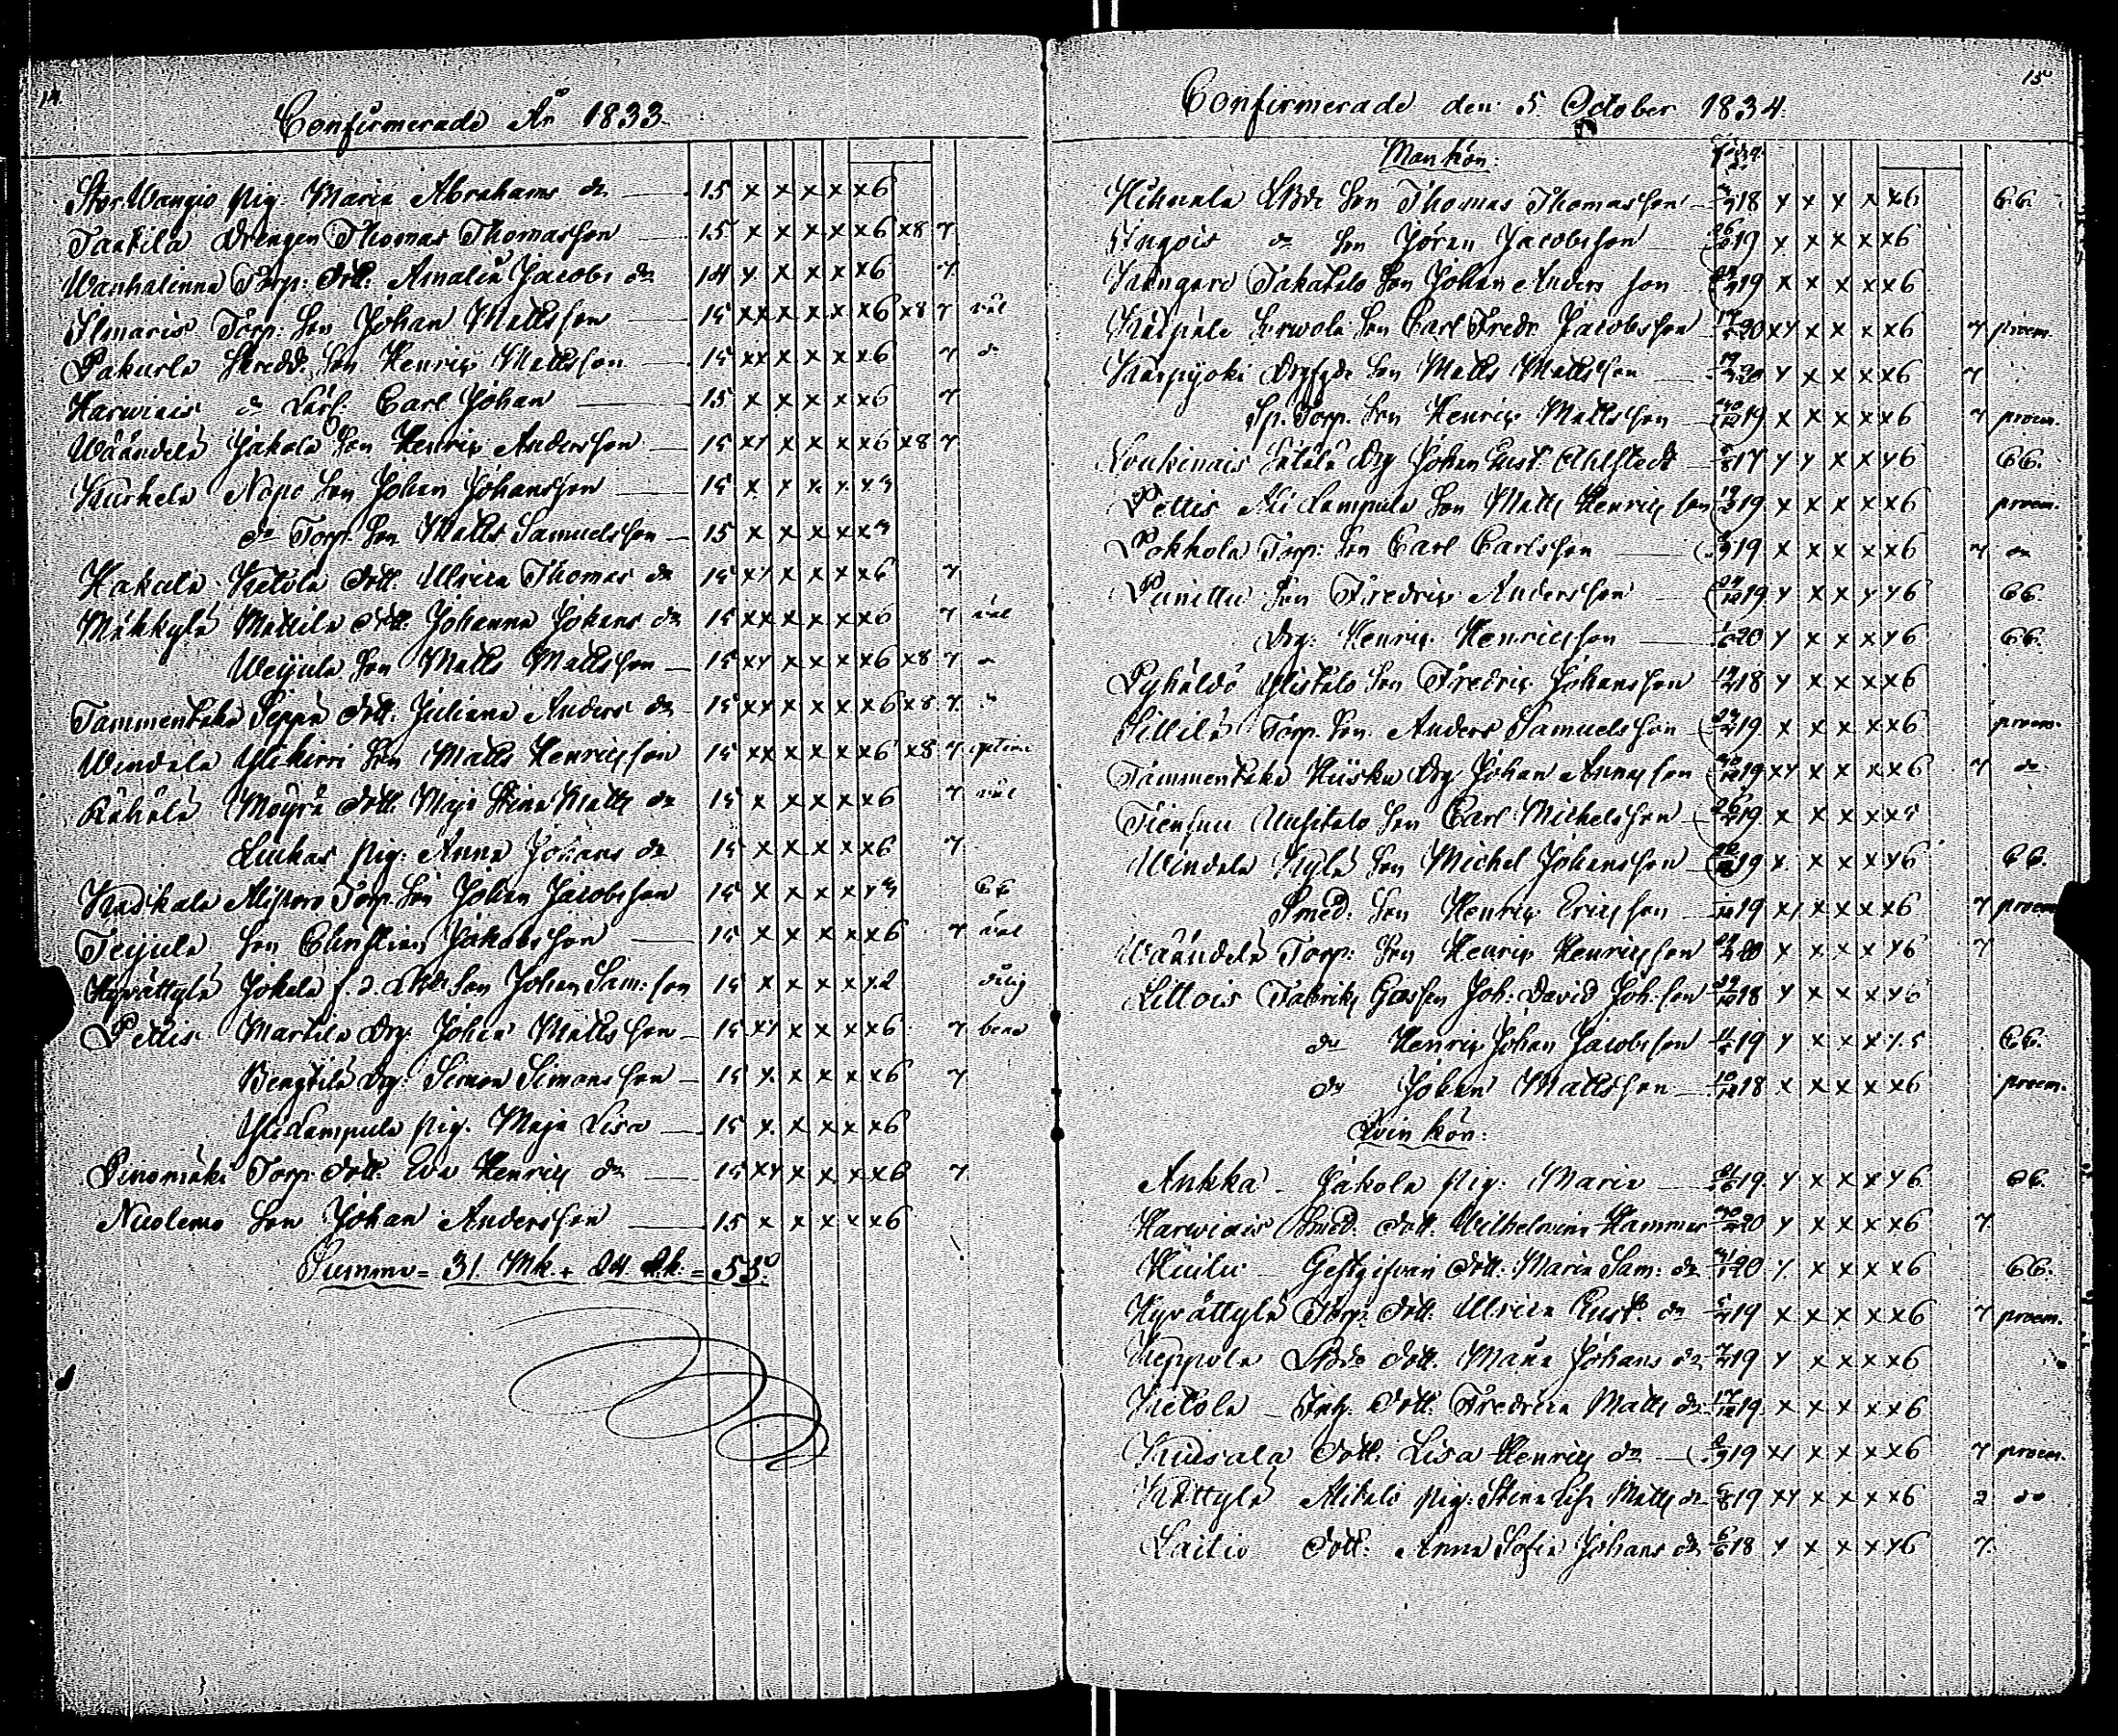 14.
Confirmerade År 1833.
Stor Wangio pig. Maria Abrahams dr 15 x x x x x6
Tattila Drengen Thomas Thomasson 15 x x x x x6 x8 7
Wanhalinna Torp: dott. Amalia Jacobs dr 14 x x x x x6 7.
Ilmaris Torp: Son Johan Mattsson 15 xx x x x x6 x8 7 väl
Pakurla Skredd. Son Henric Mattsson 15 xx x x x x6 7 do
Harwiais do Lärl: Carl Johan 15 x x x x x6 7
Wäändelä Jakola Son Henric Andersson 15 xx x x x x6 x8 7
Kurkela Nopo Son Johan Johansson 15 x x x x x3
do Torp. Son Matts Samuelsson 15 x x x x x3
Hakula Ketola dott. Ulrica Thomas dr 15 xx x x x x6 7
Mäkkylä Mattila dott. Johanna Johans dr 15 xx x x x x6 7 väl
Weijula Son Matts Mattsson 15 xx x x x x6 x8 7 do
Tammentaka Seppä dott. Juliana Anders dr 15 xx x x x x6 x8 7. do
Windala Ylikirri Son Matts Henricsson 15 xx x x x x6 x8 7 optime
Rähälä Moyrä dott. Maja Stina Matts dr 15 x x x x x6 7 väl
Liukas pig: Anna Johans dr 15 x x x x x6 7
Kaskala Torp. Son Johan Jacobsson 15 x x x x x3 CC
Teijula Son Christian Jakobsson 15 x x x x x6 7 väl
Hyvättylä Jokela Son Johan Sam: son 15 x x x x x2
Pettis Martila Drg. Johan Mattsson 15 xx x x x x6 7 bene
Bengtilä Drg: Simon Simonsson 15 x x x x x6 7
Ylidampula pig. Maja Lisa 15 x x x x x6
Pinomäki Torp. dott. Eva Henrics dr 15 xx x x x x6 7.
Nuolemo Son Johan Andersson 15 x x x x x6
Summa = 31. Mk. + 24 Qk. = 55.
15
Confirmerade den 5 October 1834.
Mankön:
Hihnala Son Thomas Thomasson 18 x x x x x6 CC.
do Son Jöran Jacobsson 19 x x x x x6
Takatalo Son Johan Andersson 19 x x x x x6
Son Carl Fredr. Jacobsson 20 xx x x x x6 7 proem.
Karpijoki Son Matts Mattsson 20 x x x x x6 7
Sp. Torp. Son Henric Mattsson 19 x x x x x6 7 proem.
Loukinais Drg Johan Gust. Ahlstedt 17 x x x x x6 CC.
Pettis Alidampula Son Matts Henricsson 19 x x x x x6 proem.
Pokkola Torp: Son Carl Carlsson 19 x x x x x6 7 do
Punittu Son Fredric Andersson 19 x x x x x6 CC.
Drg: Henric Henricsson 20 x x x x x6 CC.
Pyhäldö Ylistalo Son Fredric Johansson 18 x x x x x6
Sillilä Torp. Son Anders Samuelsson 19 x x x x x6 proem.
Tammentaka Kiisku Drg Johan Annasson 19 xx x x x x6 7 do
Tiensuu Uusitalo Son Carl Michelsson 19 x x x x x5
Windala Kylä Son Michel Johansson 19 x x x x x6 CC.
Smed. Son Henric Ericsson 19 xx x x x x6 7 proem
Wäändelä Torp: Son Henric Henricsson 20 x x x x x6 7
Littois Fabriks Gossen Joh: David Joh: son 18 x x x x x6
do Henric Johan Jacobsson 19 x x x x x5 CC.
do Johan Mattsson 18 x x x x x6 proem.
Qvinkön:
Ankka Jakola pig: Maria 19 x x x x x6 CC.
Harwiais Smed. dott. Wilhelmina Hammar 20 x x x x x6 7
Huilu Gestgifvari dott: Maria Sam: dr 20 x x x x x6 CC.
Hyvättylä Torp: dott. Ulrica Gust. dr 19 x x x x x6 7 proem.
Keppola dott. Maria Johans dr 19 x x x x x6
Ketola Inh. dott. Fredrica Matts dr 19 x x x x x6
Kuusala dott. Lisa Henrics dr 19 xx x x x x6 7 proem.
Kättylä Alitalo pig: Stina Matts dr 19 xx x x x x6 2 do
Laitio dott: Anna Sofia Johans dr 18 x x x x x6 7.